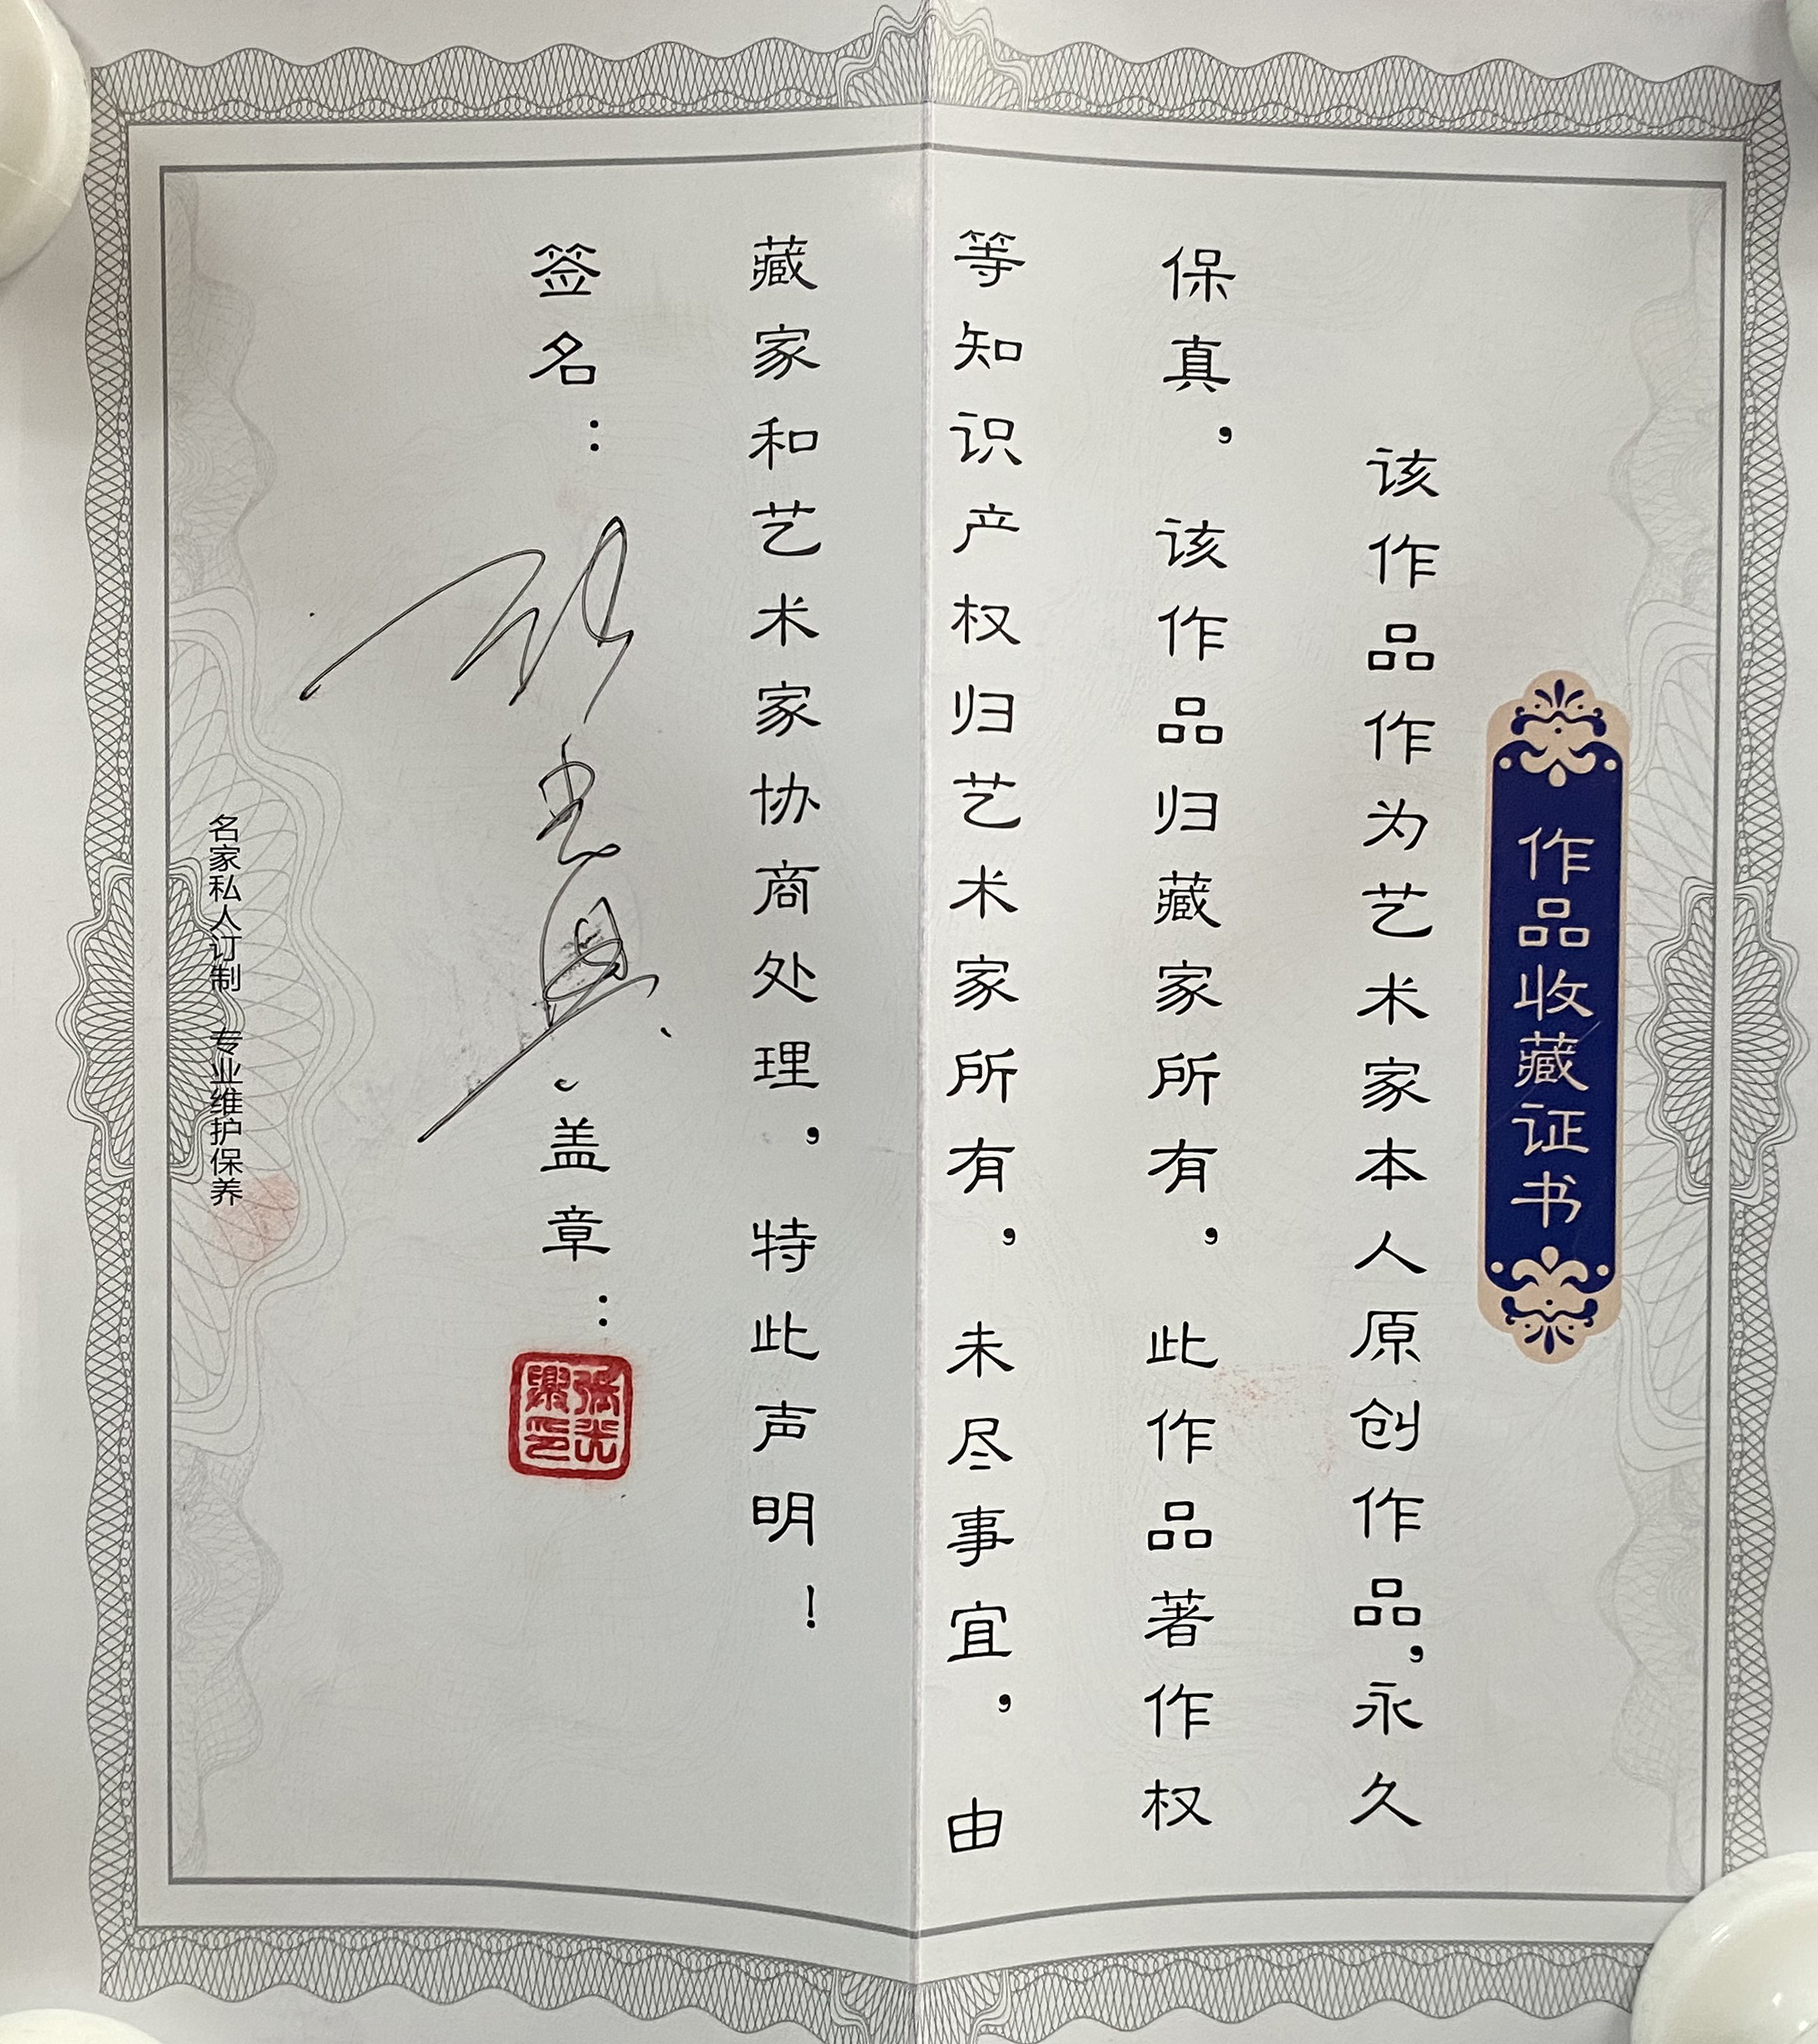 作品收藏证书
该作品作为艺术家本人原创作品,永久
保真，该作品归藏家所有，此作品著作权
等知识产权归艺术家所有，未尽事宜，由
藏家和艺术家协商处理，特此声明！
签名：盖章：
名家私人订制 专业维护保养